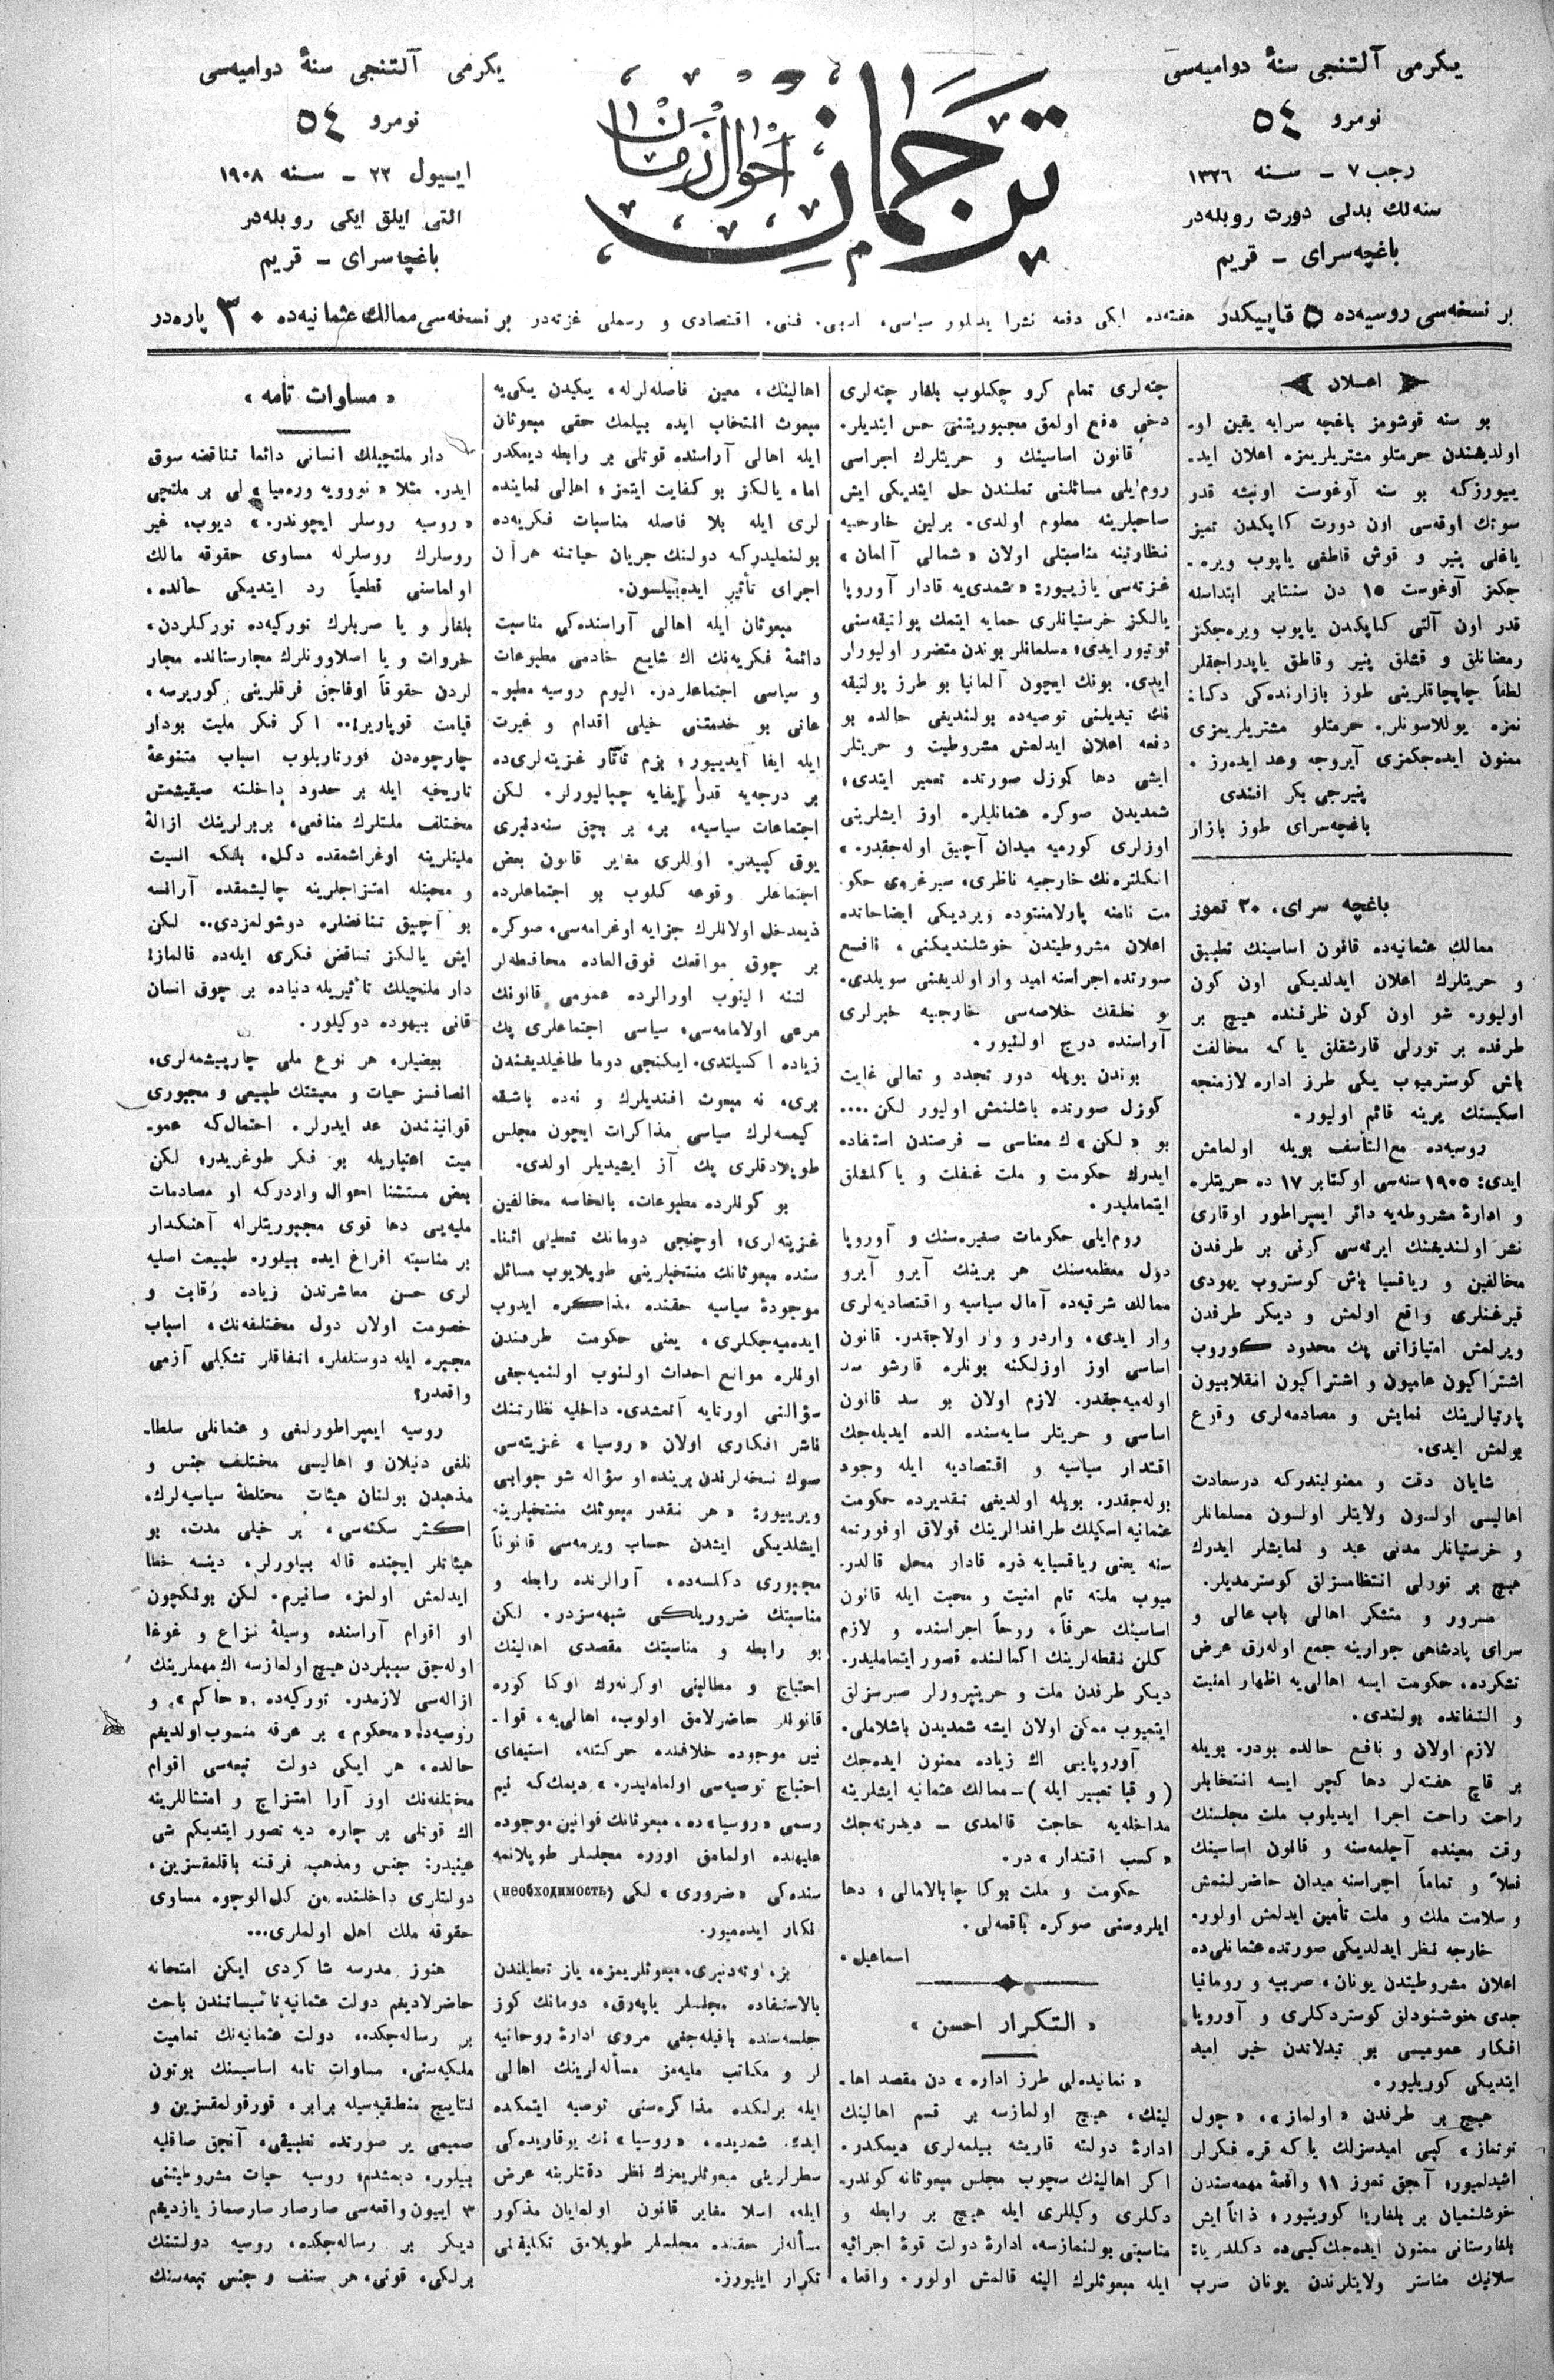 يكرمى آلتنجى سنۀ دواميه‌سى
نومرو ٥٤
رجب ٧ ـ سـنه ١٣٢٦
سنه‌لك بدلى دورت روبله‌در
باغچه‌سراى ـ قريم
ترجمان
احوال زمان
يكرمى آلتنجى سنۀ دواميه‌سى
نومرو ٥٤
ايـيول ٢٢ ـ سـنه ١٩٠٨
التى ايلق ايكى روبله‌در
باغچا سراى ـ قريم
بر نسخه‌سى روسيه‌ده ٥ قاپيكدر هفته‌ده ايكى دفعه نشر ايديلور سياسى، ادبى، فنى، اقتصادى و رسملى غزته‌در بر نسخه‌سى ممالك عثمانيه‌ده ٣٠ پاره‌در
اعلان
بو سنه قوشومز باغچه سرايه يقين او‍ـ
اولديغندن حرمتلو مشتريلريمزه اعلان ايد‍ـ
ييورزكه بو سنه آوغوست اونبشه قدر
سوتك اوقه‌سى اون دورت كاپكدن تميز
ياغلى پنير و قوش قاطقى ياپوب ويره ـ
جكمز آوغوست ١٥ دن سنتابر ابتداسنه
قدر اون آلتى كاپكدن ياپوب ويره‌جكز
رمضانلق و قشلق پنير و قاطق ياپدراجقلر
لطفاً چاپچاقلرينى طوز بازارنده‌كى دكا‍ـ
نمزه يوللاسونلر. حرمتلو مشتريلريمزى
ممنون ايده‌جكمزى آيروجه وعد ايده‌رز .
پنيرجى بكر افندى
باغچه‌سراى طوز بازار
باغچه سراى، ٢٠ تموز
ممالك عثمانيه‌ده قانون اساسينك تطبيق
و حريتلرك اعلان ايدلديكى اون كون
اوليور. شو اون كون ظرفنده هيچ بر
طرفده بر تورلى قارشقلق ياكه مخالفت
باش كوسترميوب يكى طرز اداره لازمنجه
اسكيسنك يرينه قائم اوليور.
روسيه‌ده مع‌التأسف بويله اولمامش
ايدى: ١٩٠٥ سنه‌سى اوكتابر ١٧ ده حريتلره
و ادارۀ مشروطه‌يه دائر ايمپراطور اوقازى
نشر اولنديغنك ايرته‌سى كونى بر طرفدن
مخالفين و رياقسيا باش كوستروب يهودى
قيرغنلرى واقع اولمش و ديكر طرفدن
ويرلمش امتيازاتى پك محدود كوروب
اشتراكيون عاميون و اشتراكيون انقلابيون
پارتيالرينك نمايش و مصادمه‌لرى وقوع
بولمش ايدى.
شايان دقت و ممنوليتدركه درسعادت
اهاليسى اولسون ولايتلر اولسون مسلمانلر
و خرستيانلر مدنى عيد و نمايشلر ايدرك
هيچ بر تورلى انتظامسزلق كوسترمديلر.
مسرور و متشكر اهالى باب عالى و
سراى پادشاهى جوارينه جمع اوله‌رق عرض
تشكرده، حكومت ايسه اهالى‌يه اظهار امنيت
و التفاتده بولندى.
لازم اولان و نافع حالده بودر. بويله
بر قاچ هفته‌لر دها كچر ايسه انتخابلر
راحت راحت اجرا ايديلوب ملت مجلسنك
وقت معينده آچلمه‌سنه و قانون اساسينك
فعلاً و تماماً اجراسنه ميدان حاضرلنمش
و سلامت ملك و ملت تأمين ايدلمش اولور.
خارجه نظر ايدلديكى صورتده عثمانلى‌ده
اعلان مشروطيتدن يونان، صربيه و رومانيا
جدى خوشنودلق كوستردكلرى و آوروپا
افكار عموميسى بو تبدلاتدن خير اميد
ايتديكى كوريليور.
هيچ بر طرفدن «اولماز»، «چول
توتماز» كبى اميدسزلك ياكه قره فكرلر
اشيدلميور، آنجق تموز ١١ واقعۀ مهمه‌سندن
خوشلنميان بر بلغاريا كورينيور، ذاتاً ايش
بلغارستانى ممنون ايده‌جك كبى‌ده دكلدر يا:
سلانيك مناستر ولايتلرندن يونان صرب
چته‌لرى تمام كرو چكلوب بلغار چته‌لرى
دخى دفع اولمق مجبوريتنى حس ايتديلر.
قانون اساسينك و حريتلرك اجراسى
روم‌ايلى مسائلنى تملندن حل ايتديكى ايش
صاحبلرينه معلوم اولدى. برلين خارجيه
نظارتينه مناسبتلى اولان «شمالى آلمان»
غزته‌سى يازييور: «شمدى‌يه قادار آوروپا
يالكز خرستيانلرى حمايه ايتمك پولتيقه‌سنى
توتيور ايدى؛ مسلمانلر بوندن متضرر اوليورلر
ايدى. بونك ايچون آلمانيا بو طرز پولتيقه
نك تبديلنى توصيه‌ده بولنديغى حالده بو
دفعه اعلان ايدلمش مشروطيت و حريتلر
ايشى دها كوزل صورتده تعمير ايتدى؛
شمديدن صوكره عثمانليلره اوز ايشلرينى
اوزلرى كورميه ميدان آچيق اوله‌جقدر. »
انكلتره‌نك خارجيه ناظرى، سير غروى حكو‍ـ
مت نامنه پارلامنتوده ويرديكى ايضاحاتده
اعلان مشروطيتدن خوشلنديكنى، نافع
صورتده اجراسنه اميد وار اولديغنى سويلدى.
بو نطقك خلاصه‌سى خارجيه خبرلرى
آراسنده درج اولنيور.
بوندن بويله دور تجدد و تعالى غايت
كوزل صورتده باشلنمش اوليور لكن....
بو «لكن»ك معناسى ـ فرصتدن استفاده
ايدرك حكومت و ملت غفلت و ياكلشلق
ايتمامليدر.
روم‌ايلى حكومات صغيره‌سنك و آوروپا
دول معظمه‌سنك هر برينك آيرو آيرو
ممالك شرقيه‌ده آمال سياسيه و اقتصاديه‌لرى
وار ايدى، واردر و وار اولاجقدر. قانون
اساسى اوز اوزلكنه بونلره قارشو سد
اوله‌ميه‌جقدر. لازم اولان بو سد قانون
اساسى و حريتلر سايه‌سنده الده ايديله‌جك
اقتدار سياسيه و اقتصاديه ايله وجود
بوله‌جقدر. بويله اولديغى تقديرده حكومت
عثمانيه اسكيلك طرافدارلرينك قولاق اوفورتمه
سنه يعنى رياقسيايه ذره قادار محل قالدر‍ـ
ميوب ملته تام امنيت و محبت ايله قانون
اساسينك حرفاً، روحاً اجراسنده و لازم
كلن نقطه‌لرينك اكمالنده قصور ايتمامليدر.
ديكر طرفدن ملت و حريتپرورلر صبرسزلق
ايتميوب ممكن اولان ايشه شمديدن باشلاملى.
آوروپايى اك زياده ممنون ايده‌جك
(و قبا تعبير ايله) ـ ممالك عثمانيه ايشلرينه
مداخله‌يه حاجت قالمدى ـ ديدرته‌جك
«كسب اقتدار» در.
حكومت و ملت بوكا چابالامالى؛ دها
ايلروسنى صوكره باقمه‌لى.
اسماعيل .
« التكرار احسن »
« نماينده‌لى طرز اداره » دن مقصد اها‍ـ
لينك، هيچ اولمازسه بر قسم اهالينك
ادارۀ دولته قاريشه بيلمه‌لرى ديمكدر.
اكر اهالينك سچوب مجلس مبعوثانه كوند‍ر‍ـ
دكلرى وكيللرى ايله هيچ بر رابطه و
مناسبتى بولنمازسه، ادارۀ دولت قوۀ اجرائيه
ايله مبعوثلرك الينه قالمش اولور. واقعا،
اهالينك، معين فاصله‌لرله، يكيدن يكى‌يه
مبعوث انتخاب ايده بيلمك حقى مبعوثان
ايله اهالى آراسنده قوتلى بر رابطه ديمكدر
اما، يالكز بو كفايت ايتمز؛ اهالى نماينده
لرى ايله بلا فاصله مناسبات فكريه‌ده
بولنمليدركه دولتك جريان حياتنه هرآن
اجراى تأثير ايده‌بيلسون.
مبعوثان ايله اهالى آراسنده‌كى مناسبت
دائمۀ فكريه‌نك اك شايع خادمى مطبوعات
و سياسى اجتماعلردر. اليوم روسيه مطبو‍ـ
عاتى بو خدمتنى خيلى اقدام و غيرت
ايله ايفا ايدييور؛ بزم تاتار غزيته‌لرى‌ده
بر درجه‌يه قدر ايفايه چباليورلر. لكن
اجتماعات سياسيه، بر، بر بچق سنه‌دنبرى
يوق كبيدر. اوللرى مغاير قانون بعض
اجتماعلر وقوعه كلوب بو اجتماعلرده
ذيمدخل اولانلرك جزايه اوغرامه‌سى، صوكره
بر چوق مواقعك فوق‌العاده محافظه‌لر
لتنه الينوب اورالرده عمومى قانونك
مرعى اولامامه‌سى، سياسى اجتماعلرى پك
زياده اكسيلتدى. ايكنجى دوما طاغيلديغندن
برى، نه مبعوث افنديلرك و نه‌ده باشقه
كيمسه‌لرك سياسى مذاكرات ايچون مجلس
طوپلادقلرى پك آز ايشيديلر اولدى.
بو كونلرده مطبوعات، بالخاصه مخالفين
غزيته‌لرى؛ اوچنجى دومانك تعطيلى اثنا‍ـ
سنده مبعوثانك منتخبلرينى طوپلايوب مسائل
موجودۀ سياسيه حقنده مذاكره ايدوب
ايده‌ميه‌جكلرى، يعنى حكومت طرفندن
اونلره موانع احداث اولنوب اولنميه‌جغى
سؤالنى اورتايه آتمشدى. داخليه نظارتنك
ناشر افكارى اولان «روسيا» غزيته‌سى
صوك نسخه‌لرندن برينده او سؤاله شو جوابى
ويرييور: «هر نقدر مبعوثك منتخبلرينه
ايشلديكى ايشدن حساب ويرمه‌سى قانوناً
مجبورى دكلسه‌ده، آرالرنده رابطه و
مناسبتك ضروريلكى شبهه‌سزدر. لكن
بو رابطه و مناسبتك مقصدى اهالينك
احتياج و مطالبنى اوكرنه‌رك اوكا كوره
قانونلر حاضرلامق اولوب، اهالى‌يه، قوا‍ـ
نين موجوده خلافنده حركتله، استيفاى
احتياج توصيه‌سى اولمامليدر.» ديمك‌كه نيم
رسمى «روسيا»ده، مبعوثانك قوانين موجوده
عليهنده اولمامق اوزره مجلسلر طوپلانمه
سنده‌كى «ضرورى»لكى (необходимость)
انكار ايده‌ميور.
بز، اوته‌دنبرى، مبعوثلريمزه، ياز تعطيلندن
بالاستفاده مجلسلر ياپه‌رق، دومانك كوز
جلسه‌سنده باقيله‌جغى مروى ادارۀ روحانيه
لر و مكاتب مليه‌مز مسأله‌لرينك اهالى
ايله برلكده مذاكره‌سنى توصيه ايتمكده
ايدك. شمديده، «روسيا»نك يوقاريده‌كى
سطرلرينى مبعوثلريمزك نظر دقتلرينه عرض
ايله، اصلا مغاير قانون اولمايان مذكور
مسأله‌لر حقنده مجلسلر طوپلامق تكليفنى
تكرار ايليورز.
« مساوات تامه »
دار ملتچيلك انسانى دائما تناقضه سوق
ايدر. مثلا «نوويه وره‌ميا» لى بر ملتچى
«روسيه روسلر ايچوندر.» ديوب، غير
روسلرك روسلرله مساوى حقوقه مالك
اولماسنى قطعياً رد ايتديكى حالده،
بلغار و يا صربلرك توركيه‌ده توركلردن،
خروات و يا اصلاوونلرك مجارستانده مجار
لردن حقوقاً اوفاجق فرقلرينى كوررسه،
قيامت قوپارير!.. اكر فكر مليت بودار
چارچوه‌دن قورتاريلوب اسباب متنوعۀ
تاريخيه ايله بر حدود داخلنه صيقيشمش
مختلف ملتلرك منافعى، بربرلرينك ازالۀ
مليتلرينه اوغراشمقده دكل، بلكه انسيت
و محبتله امتزاجلرينه چاليشمقده آرانسه
بو آچيق تناقضلره دوشولمزدى.. لكن
ايش يالكز تناقض فكرى ايله‌ده قالماز!
دار ملتچيلك تأثيريله دنياده بر چوق انسان
قانى بيهوده دوكيلور.
بعضيلر، هر نوع ملى چارپيشمه‌لرى،
انصافسز حيات و معيشتك طبيعى و مجبورى
قوانيندن عد ايدرلر. احتمال‌كه عمو‍ـ
ميت اعتباريله بو فكر طوغريدر؛ لكن
بعض مستثنا احوال واردركه او مصادمات
مليه‌يى دها قوى مجبوريتلرله آهنكدار
بر مناسبته افراغ ايده بيلور. طبيعت اصليه
لرى حسن معاشرتدن زياده رقابت و
خصومت اولان دول مختلفه‌نك، اسباب
مجبره ايله دوستلغلر، اتفاقلر تشكيلى آزمى
واقعدر؟
روسيه ايمپراطورلغى و عثمانلى سلطا‍ـ
نلغى دنيلان و اهاليسى مختلف جنس و
مذهبدن بولنان هيئات مختلطۀ سياسيه‌لرك،
اكثر سكنه‌سى، بر خيلى مدت، بو
هيئاتلر ايچنده قاله بيلورلر، دينسه خطا
ايدلمش اولمز، صانيرم. لكن بونكچون
او اقوام آراسنده وسيلۀ نزاع و غوغا
اوله‌جق سببلردن هيچ اولمازسه اك مهملرينك
ازاله‌سى لازمدر. توركيه‌ده «حاكم»، و
روسيه‌ده «محكوم» بر عرقه منسوب اولديغم
حالده، هر ايكى دولت تبعه‌سى اقوام
مختلفه‌نك اوز آرا امتزاج و امتثاللرينه
اك قوتلى بر چاره ديه تصور ايتديكم شى
عينيدر: جنس و مذهب فرقنه باقلمقسزين،
دولتلرى داخلنده من كل‌الوجوه مساوى
حقوقه ملك اهل اولملرى...
هنوز مدرسه شاكردى ايكن امتحانه
حاضرلاديغم دولت عثمانيه تأسيساتندن باحث
بر رساله‌جكده، دولت عثمانيه‌نك تماميت
ملكيه‌سنى، مساوات تامه اساسينك بوتون
نتايج منطقيه‌سيله برابر، قورقولمقسزين و
صميمى بر صورتده تطبيقى، آنجق صاقليه
بيلور، ديمشدم؛ روسيه حيات مشروطيتنى
٣ ايـيون واقعه‌سى صارصار صارصماز يازديغم
ديكر بر رساله‌جكده، روسيه دولتنك
برلكى، قوتى، هر صنف و جنس تبعه‌سنك